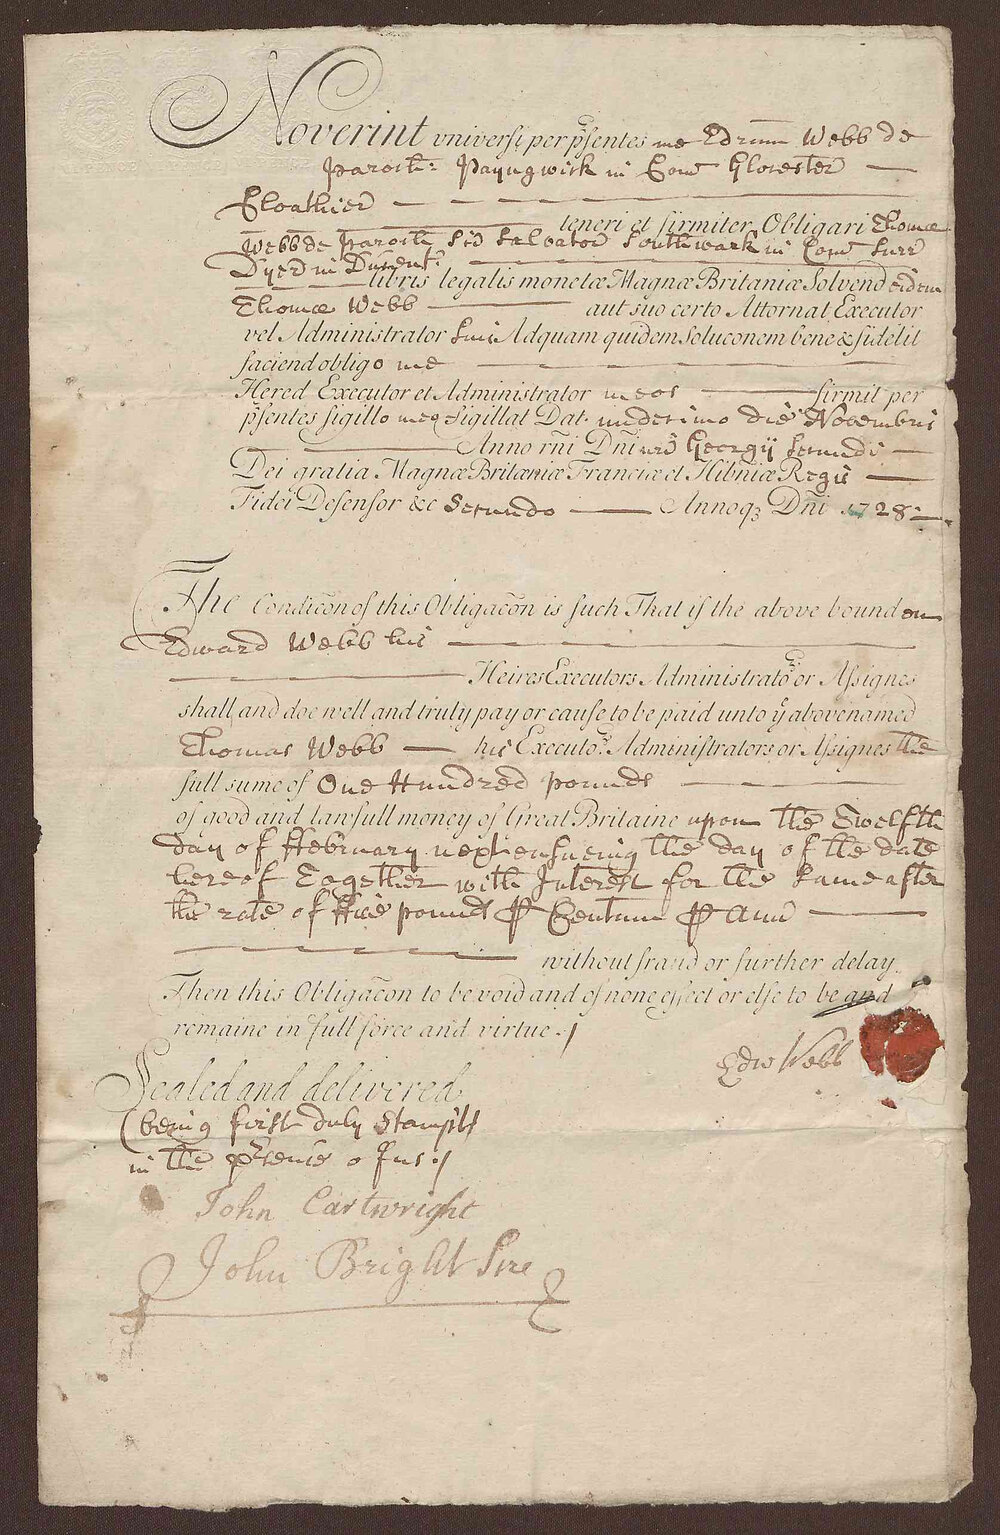 Noverint universi per p̃sentes me Edrūm Webb de
paroch: Payngwick in Com̄ Glocester
Cloathier
teneri et firmiter Obligari Thomæ
Webb de paroch S̃ci Salvator Southwark in Com̄ Surr
Dyer in Ducent:
libris legalis monetæ Magnæ Britaniæ Solvend eidem
Thomæ Webb aut suo certo Attornat Executor
vel Administrator suis Adquam quidem Soluconem bene & fidelit
faciend obligo me
Hered Executor et Administrator meos firmit per
p̃sentes sigillo meo Sigillat Dat. undecimo die Novembris
Anno rñi Dñi nr̃i Georgij Secundi
Dei gratia Magnæ Britaniæ Franciæ et Hibniæ Regis
Fidei Defensor &c Secundo Annoq3 Dñi 1728
The Condicõn of this Obligacõn is such That if the above bounden
Edward Webb his
Heires Executors Administrators or Assignes
shall and doe well and truly pay or cause to be paid unto ye abovenamed
Thomas Webb his Executors Administrators or Assignes the
full sume of One Hundred pounds
of good and lawfull money of Great Britaine upon the Twelfth
day of ffebruary next ensueing the day of the date
hereof Together with Interest for the same after
the rate of ffive pounds ꝑ Centum ꝑ Ann̄
without fraud or further delay
Then this Obligacõn to be void and of none effect or else to be and
remaine in full force and virtue./
Edw Webb
Sealed and delivered
(being first duly Stampt
in the p̃sence of us:/
John Cartwright
John Bright Scre